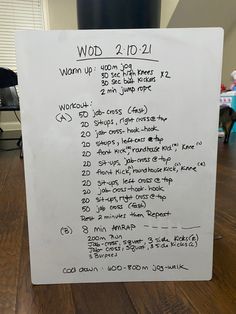 WOD 2-10-21
Warm up: 400m jog
30 sec high knees x2
30 sec butt kickers
2 min jump rope
Workout:
(A) 50 job-cross (fast)
20 sit-ups, right cross @ top
20 job-cross-hook-hook
20 situps, left cross @ top
20 front kick, roundhouse kick, knee
20 sit-ups, job-cross @ top
20 front kick, roundhouse kick, knee
20 sit-ups, left cross @ top
20 job-cross-hook-hook
20 sit-ups, right cross @ top
50 job-cross (fast)
Rest 2 minutes then Repeat
(B) 8 min AMRAP
200m Run
Job-cross, squat, 3 side kicks (R)
Job-cross, squat, 3 side kicks (L)
3 Burpees
Cool down: 600-800m jog-walk